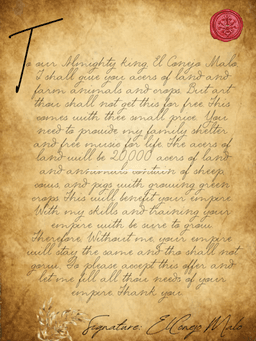 To our Almighty king "El Conejo Malo"
I shall give you acers of land and
farm animals and crops. But art
thou shall not get this for free. This
comes with thee small price. You
need to provide my family shelter
and free music for life. The acers of
land will be 20,000 acers of land
and animals contain of sheep,
cows and pigs with growing green
crops. This will benefit your empire.
With my skills and training your
empire with be sure to grow.
Therefore, Without me your empire
will stay the same and tho shall not
grow. So please accept this offer and
let me fill all thoir needs of your
empire. Thank you.
Signature: El Conejo Malo